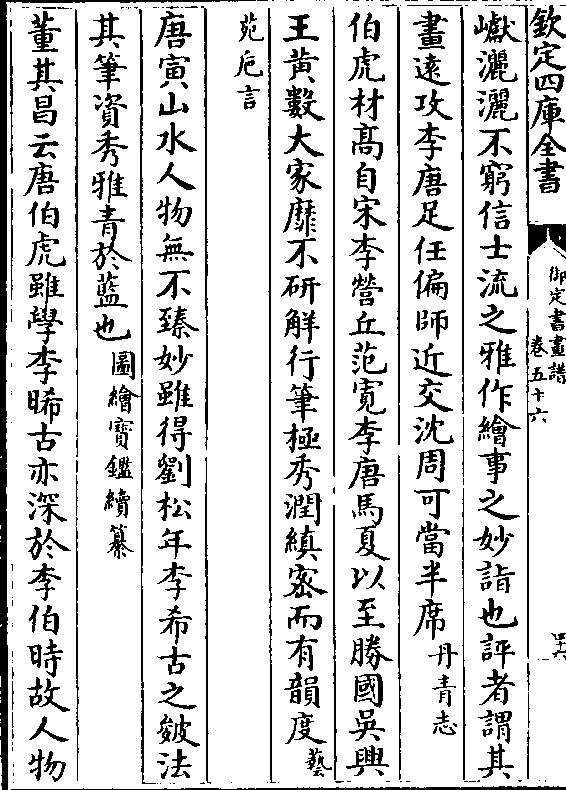 欽定四庫全書
御定書畫譜
卷五十六
巘灑灑不窮信士流之雅作繪事之妙詣也評者謂其
畫遠攻李唐足任偏師近交沈周可當半席丹青志
伯虎材髙自宋李營丘范寛李唐馬夏以至勝國吳興
王黄數大家靡不研解行筆極秀潤縝宻而有韻度藝
苑巵言
唐寅山水人物無不臻妙雖得劉松年李希古之皴法
其筆資秀雅青於藍也圖繪寶鑑續纂
董其昌云唐伯虎雖學李晞古亦深於李伯時故人物